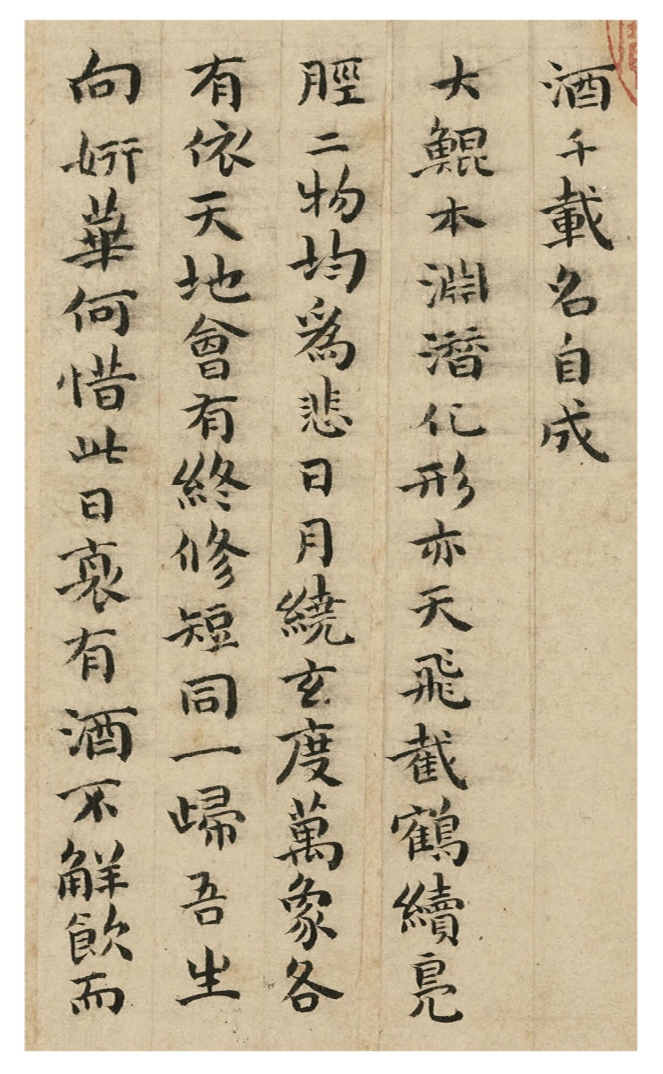 酒千載名自成
大鯤本淵潛化形亦天飛截鶴續鳧
脛二物均爲悲日月繞玄度萬象各
有依天地會有終修短同一歸吾生
向妍華何惜此日衰有酒不觧飲而